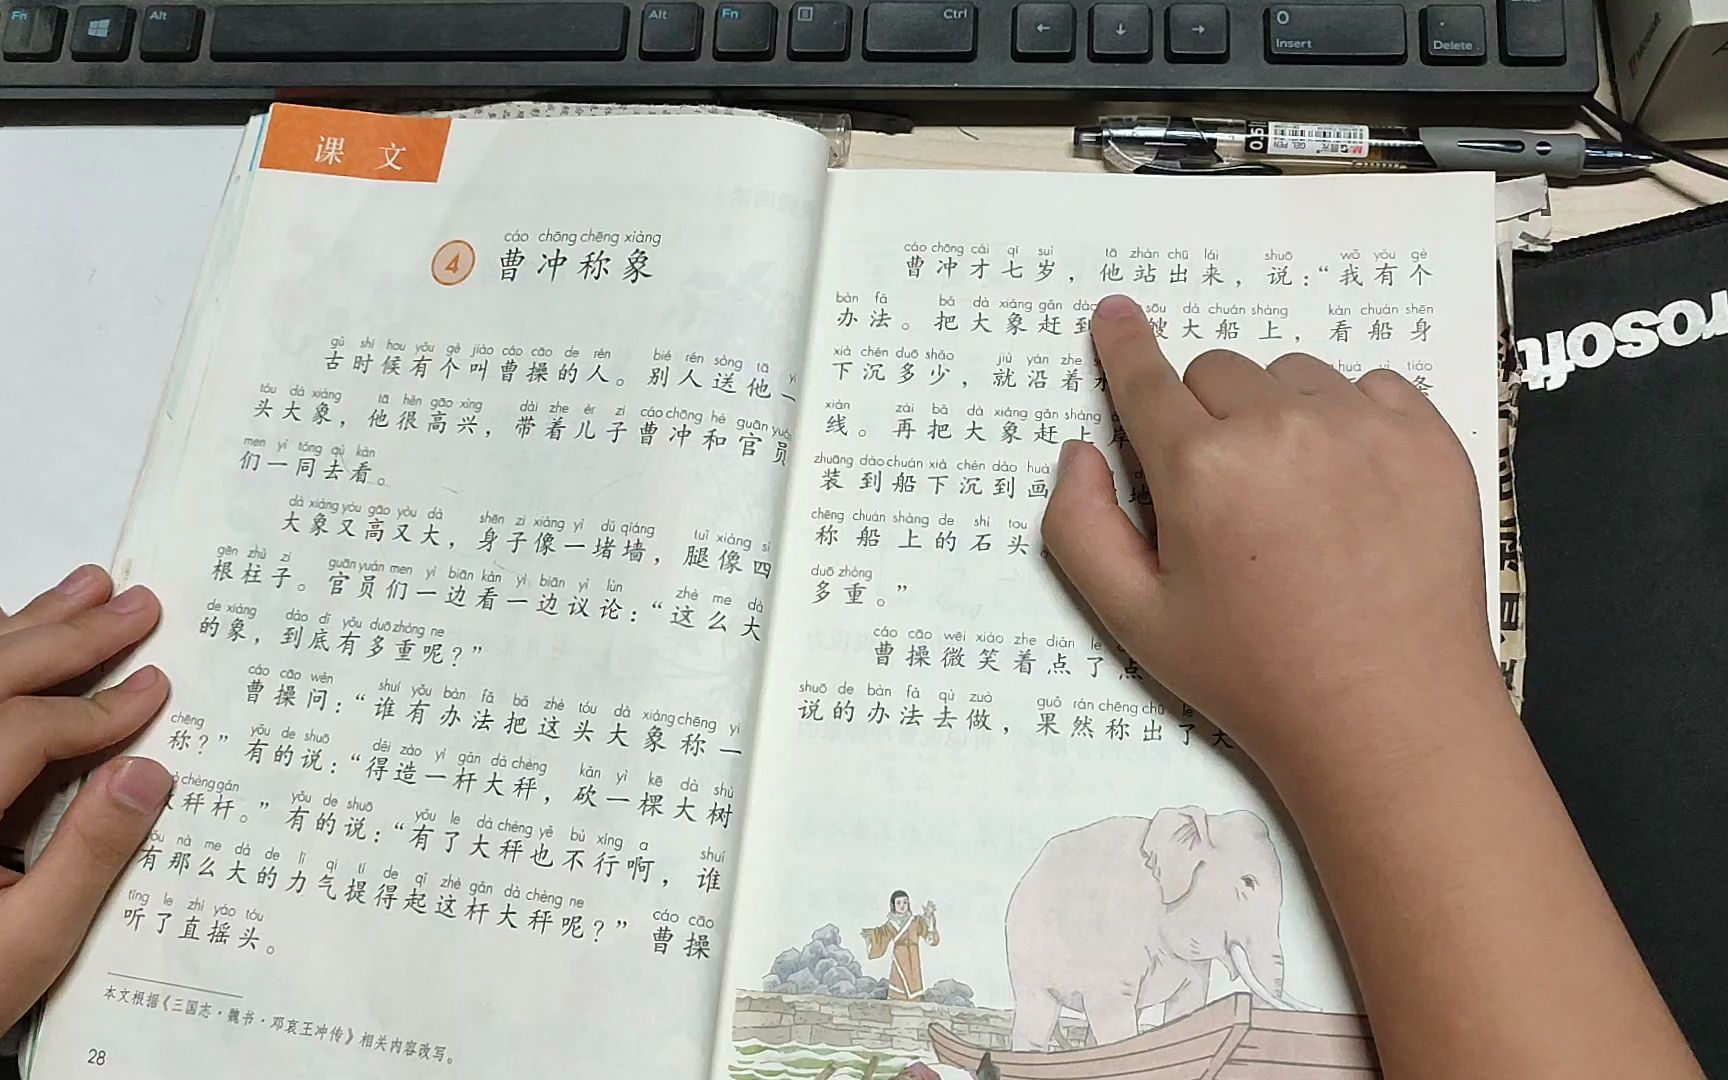 Fn
Alt
Alt
Fn
Ctrl
0
Insert
.
Delete
0.5
GEL PEN
rosoft
课 文
cáo chōng chēng xiàng
4 曹冲称象
gǔ shí hou yǒu gè jiào cáo cāo de rén bié rén sòng tā yì
古时候有个叫曹操的人。别人送他一
tóu dà xiàng tā hěn gāo xìng dài zhe ér zi cáo chōng hé guān yuán
头大象，他很高兴，带着儿子曹冲和官员
men yì tóng qù kàn
们一同去看。
dà xiàng yòu gāo yòu dà shēn zi xiàng yì dǔ qiáng tuǐ xiàng sì
大象又高又大，身子像一堵墙，腿像四
gēn zhù zi guān yuán men yì biān kàn yì biān yì lùn zhè me dà
根柱子。官员们一边看一边议论：“这么大
de xiàng dào dǐ yǒu duō zhòng ne
的象，到底有多重呢？”
cáo cāo wèn shuí yǒu bàn fǎ bǎ zhè tóu dà xiàng chēng yi
曹操问：“谁有办法把这头大象称一
chēng yǒu de shuō děi zào yì gǎn dà chèng kǎn yì kē dà shù
称？”有的说：“得造一杆大秤，砍一棵大树
chèng gǎn yǒu de shuō yǒu le dà chèng yě bù xíng a shuí
秤杆。”有的说：“有了大秤也不行啊，谁
yǒu nà me dà de lì qi tí de qǐ zhè gǎn dà chèng ne cáo cāo
有那么大的力气提得起这杆大秤呢？”曹操
tīng le zhí yáo tóu
听了直摇头。
本文根据《三国志·魏书·邓哀王冲传》相关内容改写。
28
cáo chōng cái qī suì tā zhàn chū lái shuō wǒ yǒu gè
曹冲才七岁，他站出来，说：“我有个
bàn fǎ bǎ dà xiàng gǎn dào sōu dà chuán shàng kàn chuán shēn
办法。把大象赶到艘大船上，看船身
xià chén duō shǎo jiù yán zhe huà yì tiáo
下沉多少，就沿着水条
xiàn zài bǎ dà xiàng gǎn shàng
线。再把大象赶上岸
zhuāng dào chuán xià chén dào huà
装到船下沉到画地
chēng chuán shàng de shí tou
称船上的石头
duō zhòng
多重。”
cáo cāo wēi xiào zhe diǎn le
曹操微笑着点了点
shuō de bàn fǎ qù zuò guǒ rán chēng chū le
说的办法去做，果然称出了大